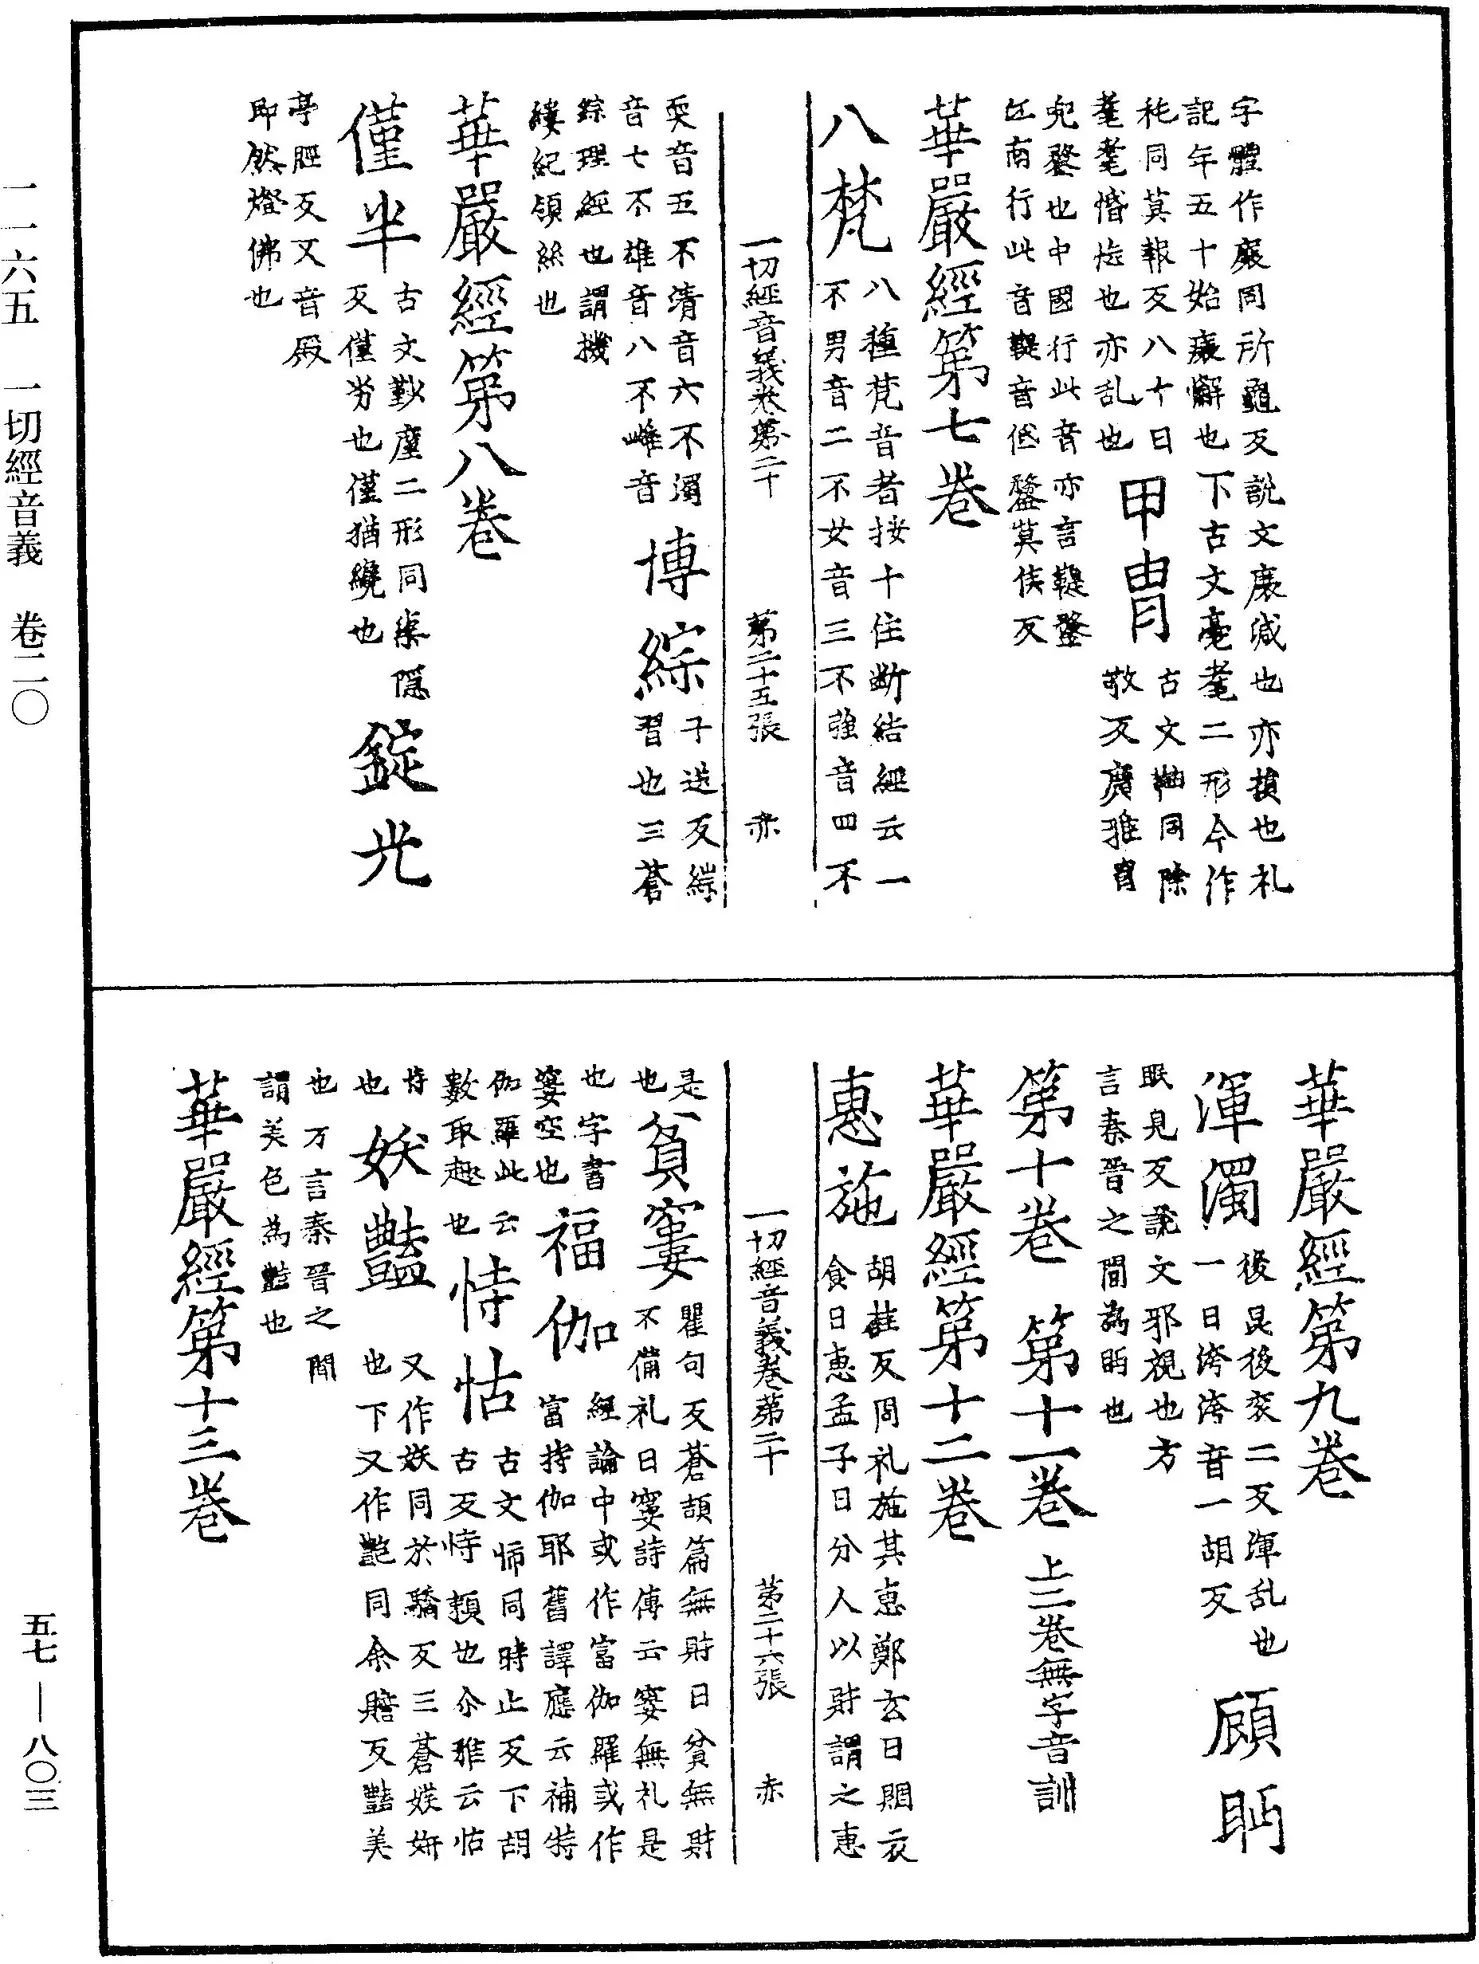 字體作癈同所龜反說文癈減也亦損也礼
記年五十始衰懈也下古文薧耄二形今作
秏同莫報反八十日
耄耄惛忘也亦乱也
甲冑
古文𩊄同除
救反廣雅冑
兜鍪也中國行此音亦言鞮鍪
江南行此音鞮音低鍪莫侯反
華嚴經第七卷
八梵
八種梵音者按十住断結經云一
不男音二不女音三不強音四不
一切經音義卷第二十 第二十五張 赤
耎音五不清音六不濁
音七不雄音八不雌音
博綜
子送反綜
習也三蒼
綜理經也謂機
縷紀領絲也
華嚴經第八卷
僅半
古文勤廑二形同渠隱
反僅劣也僅猶纔也
錠光
亭脛反又音殿
即然燈佛也
華嚴經第九卷
渾濁
後昆後衮二反渾乱也
一曰洿洿音一胡反
顧眄
眠見反說文邪視也方
言秦晉之間為眄也
第十卷 第十一卷 上二卷無字音訓
華嚴經第十二卷
惠施
胡桂反周礼施其惠鄭玄曰賙衣
食曰惠孟子曰分人以財謂之惠
一切經音義卷第二十 第二十六張 赤
是
也
貧窶
瞿句反蒼頡篇無財曰貧無財
不備礼曰窶詩傳云窶無礼是
也字書
窶空也
福伽
經論中或作富伽羅或作
富特伽耶舊譯應云補特
伽羅此云
數取趣也
恃怙
古文𢘆同時止反下胡
古反恃賴也尒雅云怙
恃
也
妖豔
又作妖同於驕反三蒼媄妍
也下又作艷同余贍反豔美
也方言秦晉之間
謂美色為豔也
華嚴經第十三卷
一一六五 一切經音義 卷二〇
五七—八〇三